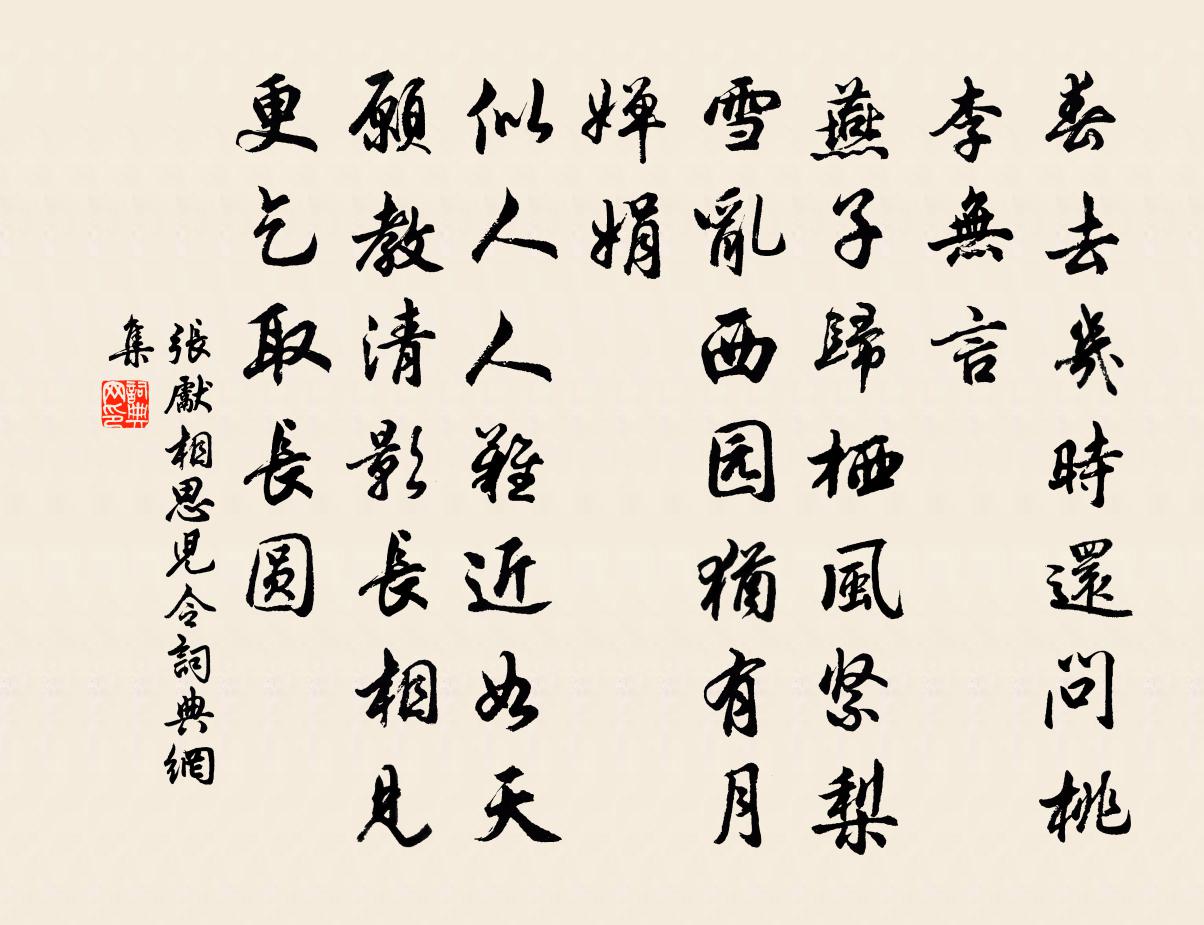 春去幾時還問桃
李無言
燕子歸栖風緊梨
雪亂西园猶有月
嬋娟
似人人難近如天
願教清影長相見
更乞取長圆
張先相思兒令詞典網
集
詞典網印